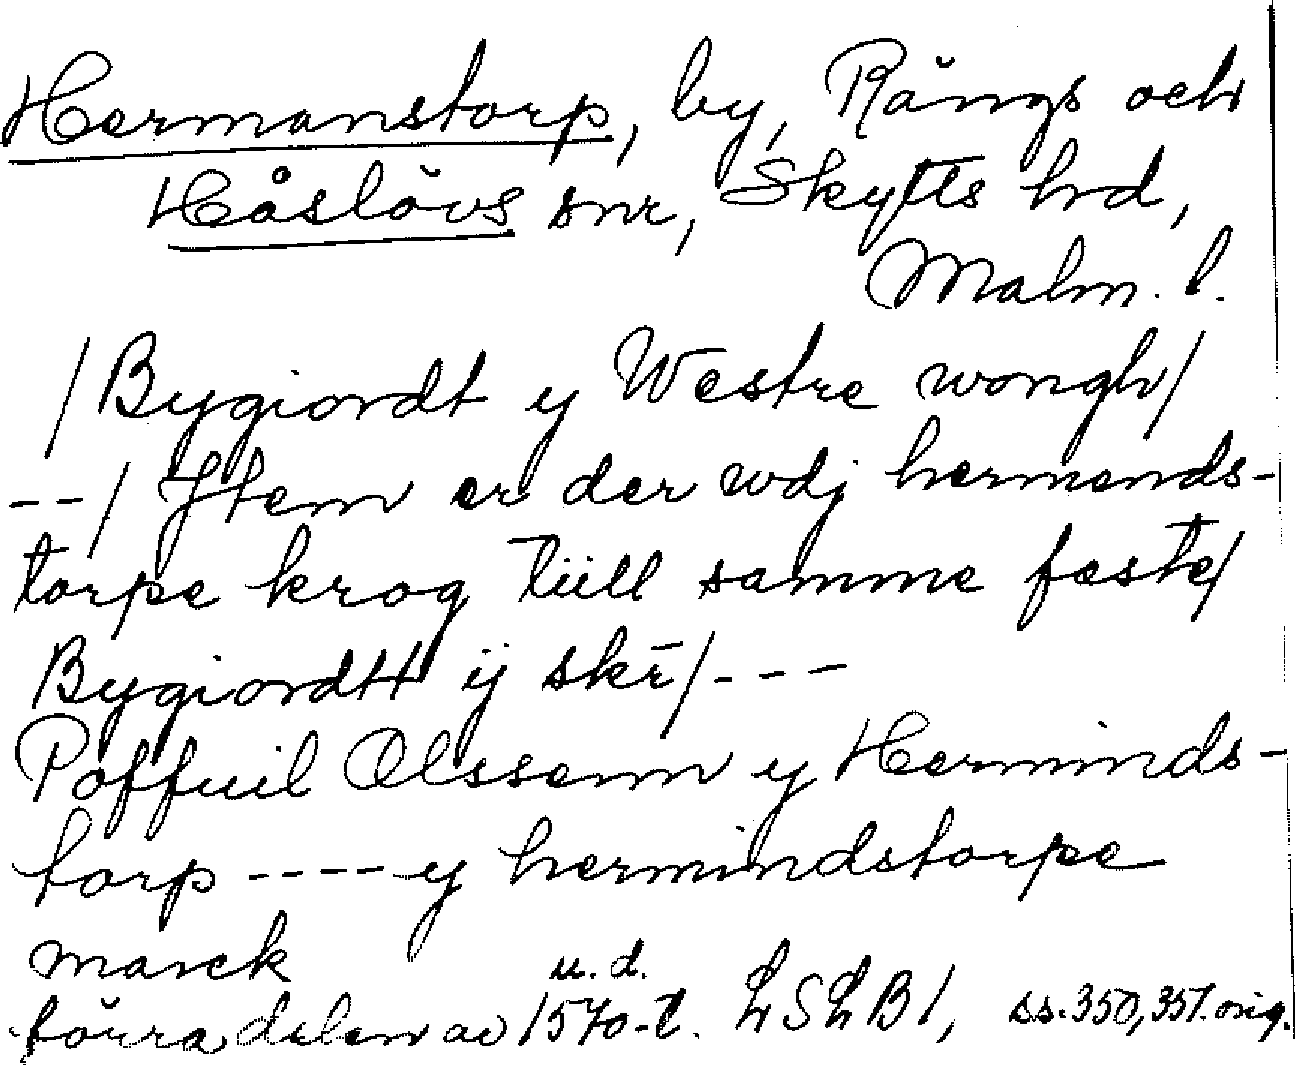 Hermanstorp, by, Rängs och
Håslövs snr, Skytts hd,
Malm. l.
/Bygiordt y Westre wongh/
--/ Jtem er der wdj hermends-
torpe krog tüll samme feste/
Bygiordtt ÿ skr̄/---
Poffuil Olssenn y Herminds-
torp ---- y hermindstorpe
marck
u. d.
förra delen av 1570-t. LSLB1, ss. 350, 351. orig.